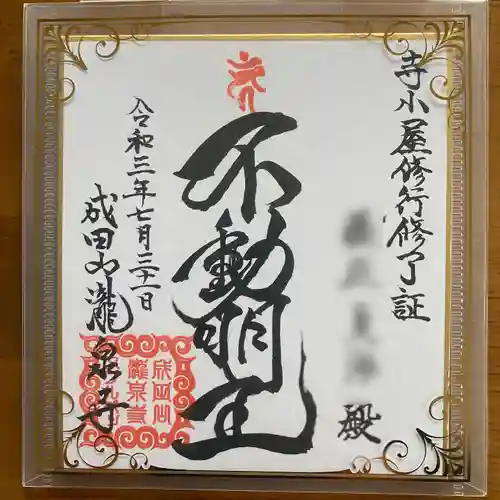 寺小屋修行修了証
殿
不動明王
令和三年七月三十一日
成田山瀧泉寺
成田山
瀧泉寺